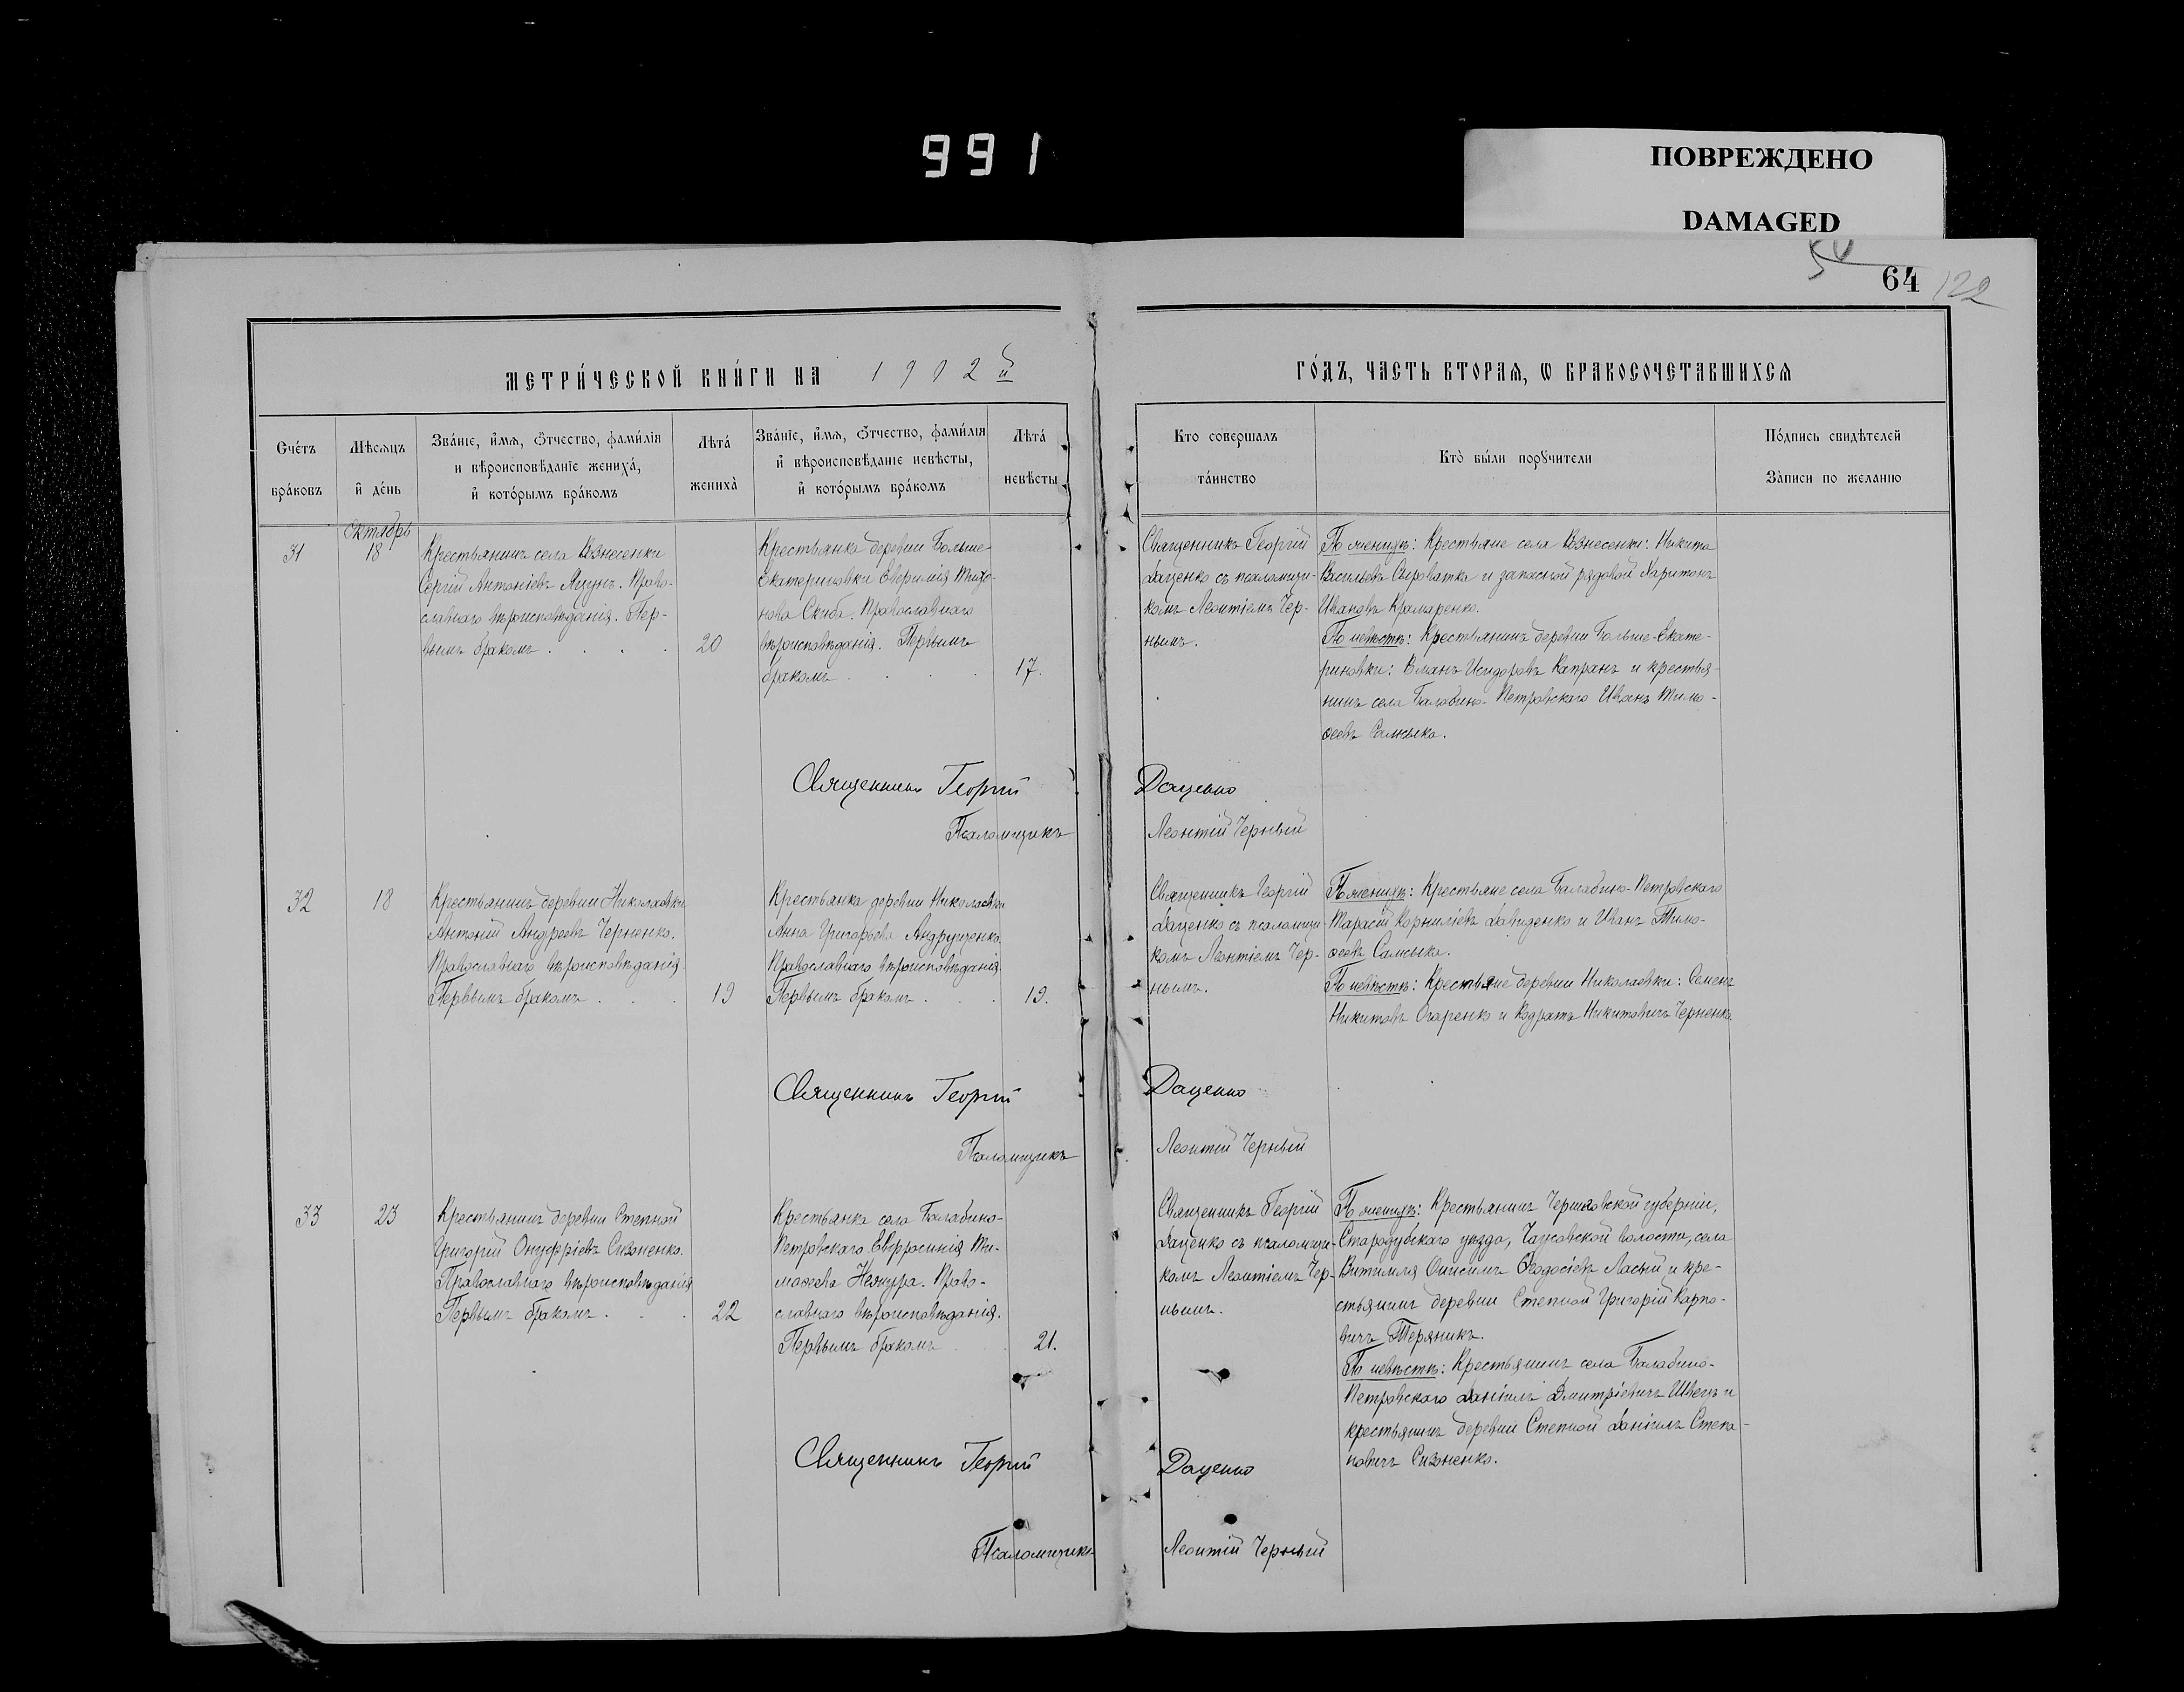 991
ПОВРЕЖДЕНО
DAMAGED
50
64 122
МЕТРИ́ЧЕСКОЙ КНИ́ГИ НА 1912й
ГО́ДЪ, ЧАСТЬ ВТОРАѦ, Ѡ БРАКОСОЧЕТАВШИХСѦ
Сче́тъ
бра́ковъ
Мѣсѧцъ
и҆ де́нь
Зва́нїе, и҆́мѧ, ѻ҆́тчество, фами́лїѧ
и вѣроисповѣ́данїе жениха́,
и҆ кото́рымъ бра́комъ
Лѣта́
жениха̀
Зва́нїе, и҆́мѧ, ѻ҆́тчество, фами́лїѧ
и҆ вѣроисповѣ́данїе невѣ́сты,
и҆ кото́рымъ бра́комъ
Лѣта́
невѣ́сты
Кто совершалъ
та́инство
Кто̀ бы́ли порꙋчители
По́дпись свидѣ́телей
За́писи по жела́нїю
Октябрь
31
18
Крестьянинъ села Вознесенки
Сергій Антоніевъ Ягунъ. Право-
славнаго вѣроисповѣданія. Пер-
вымъ бракомъ . . . .
20
Крестьянка деревни Больше-
Екатериновки Евфимія Тихо-
нова Скиба. Православнаго
вѣроисповѣданія. Первымъ
бракомъ . . . .
17.
Священникъ Георгій
Даценко съ псаломщи-
комъ Леонтіемъ Чер-
нымъ.
По женихѣ: Крестьяне села Вознесенки: Никита
Васильевъ Сыроватка и запасной рядовой Харитонъ
Ивановъ Крамаренко.
По невѣстѣ: Крестьянинъ деревни Больше-Екате-
риновки: Власъ Исидоровъ Капранъ и крестья-
нинъ села Балабино-Петровскаго Иванъ Тимо-
ѳеевъ Самсыка.
Священникъ Георгій Даценко
Псаломщикъ Леонтій Черный
32
18
Крестьянинъ деревни Николаевки
Антоній Андреевъ Черненко.
Православнаго вѣроисповѣданія.
Первымъ бракомъ . . .
19
Крестьянка деревни Николаевки
Анна Григорьева Андрущенко.
Православнаго вѣроисповѣданія.
Первымъ бракомъ . . .
19.
Священникъ Георгій
Даценко съ псаломщи-
комъ Леонтіемъ Чер-
нымъ.
По женихѣ: Крестьяне села Балабино-Петровскаго
Тарасій Корниліевъ Давиденко и Иванъ Тимо-
ѳеевъ Самсыка.
По невѣстѣ: Крестьяне деревни Николаевки: Семенъ
Никитовъ Огаренко и Кодратъ Никитовичъ Черненко.
Священникъ Георгій Даценко
Псаломщикъ Леонтій Черный
33
23
Крестьянинъ деревни Степной
Григорій Онуфріевъ Сизоненко.
Православнаго вѣроисповѣданія
Первымъ бракомъ . . .
22
Крестьянка села Балабино-
Петровскаго Евфросинія Ти-
моѳеева Нежура. Право-
славнаго вѣроисповѣданія.
Первымъ бракомъ
21.
Священникъ Георгій
Даценко съ псаломщи-
комъ Леонтіемъ Чер-
нымъ.
По женихѣ: Крестьянинъ Черниговской губерніи,
Стародубскаго уѣзда, волости, села
Витимля Онисимъ Ѳеодосіевъ Ласый и кре-
стьянинъ деревни Степной Григорій Карпо-
вичъ Теряникъ.
По невѣстѣ: Крестьянинъ села Балабино-
Петровскаго Даніилъ Дмитріевичъ Швецъ и
крестьянинъ деревни Степной Даніилъ Степа-
новичъ Сизоненко.
Священникъ Георгій Даценко
Псаломщикъ Леонтій Черный